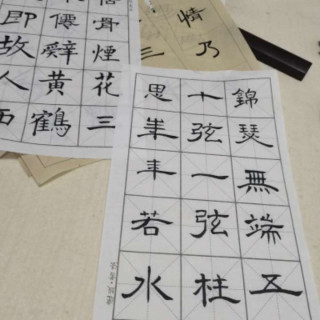 錦瑟無端五
十弦一弦柱
思華年若水
骨煙花三
僊辭黃鶴
即故人西
情乃
三